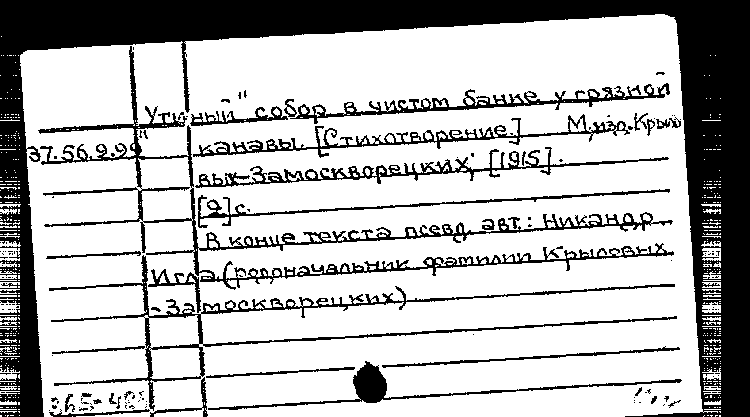 "Утиный" собор в чистом бание у грязной
37.56.9.99 канавы. [Стихотворение.] М, изд. Крыло
вых-Замоскворецких, [1915].
[2] с.
В конце текста псевд. авт.: Никандр
Игла (родоначальник фамилии Крыловых
-Замоскворецких)